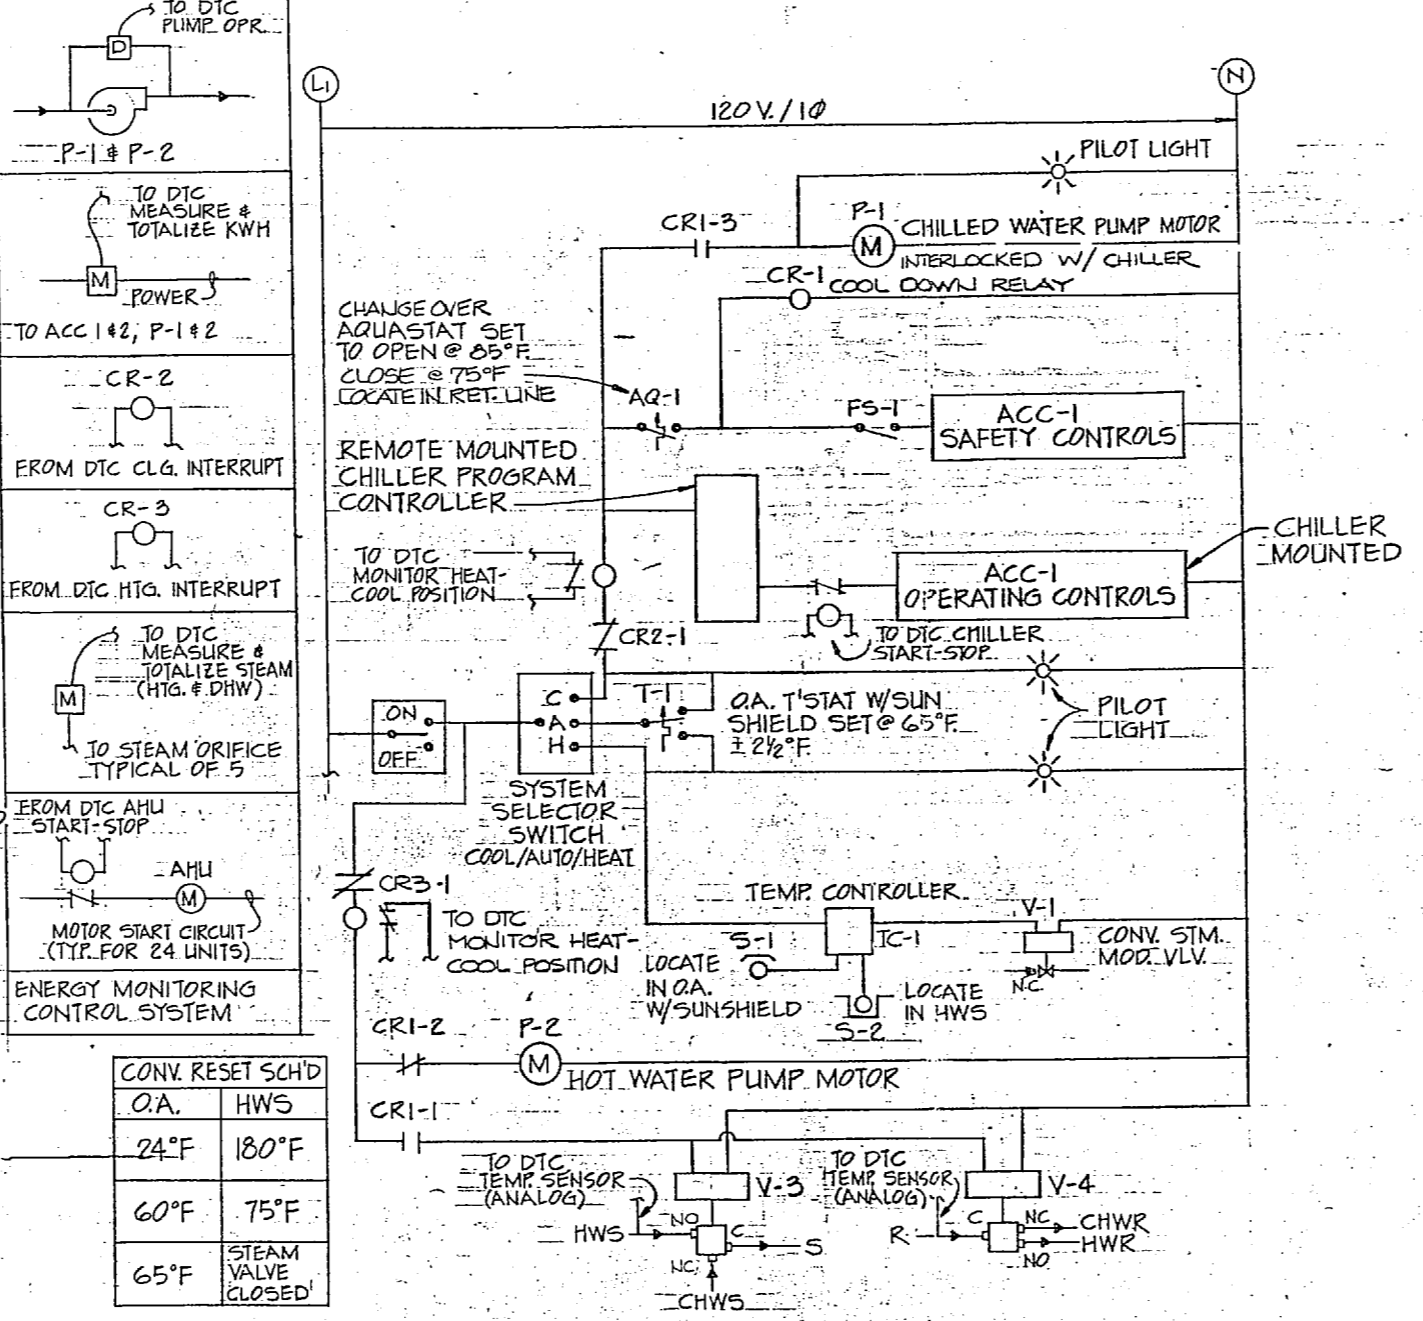 TO DTC
PUMP OPR.
D
P-1 & P-2
TO DTC
MEASURE &
TOTALIZE KWH
M
POWER
TO ACC 1&2, P-1 & 2
CR-2
FROM DTC CLG. INTERRUPT
CR-3
FROM DTC HTG. INTERRUPT
TO DTC
MEASURE &
TOTALIZE STEAM
(HTG. & DHW)
M
TO STEAM ORIFICE
TYPICAL OF 5
FROM DTC AHU
START-STOP
AHU
M
MOTOR START CIRCUIT
(TYP. FOR 24 UNITS)
ENERGY MONITORING
CONTROL SYSTEM
CONV. RESET SCH'D
O.A. HWS
24°F 180°F
60°F 75°F
65°F STEAM
VALVE
CLOSED
L1
N
120 V. / 1Ø
PILOT LIGHT
CR1-3
P-1
M
CHILLED WATER PUMP MOTOR
INTERLOCKED W/ CHILLER
CR-1
COOL DOWN RELAY
CHANGE OVER
AQUASTAT SET
TO OPEN @ 85°F
CLOSE @ 75°F
LOCATE IN RET. LINE
AQ-1
FS-1
ACC-1
SAFETY CONTROLS
REMOTE MOUNTED
CHILLER PROGRAM
CONTROLLER
CHILLER
MOUNTED
TO DTC
MONITOR HEAT-
COOL POSITION
ACC-1
OPERATING CONTROLS
CR2-1
TO DTC CHILLER
START-STOP
ON
OFF
C
A
H
T-1
O.A. T'STAT W/SUN
SHIELD SET @ 65°F.
± 2½°F
PILOT
LIGHT
SYSTEM
SELECTOR
SWITCH
COOL/AUTO/HEAT
CR3-1
TO DTC
MONITOR HEAT-
COOL POSITION
TEMP. CONTROLLER
TC-1
V-1
CONV. STM.
MOD. VLV.
N.C.
S-1
LOCATE
IN O.A.
W/SUNSHIELD
LOCATE
IN HWS
S-2
CR1-2
P-2
M
HOT WATER PUMP MOTOR
CR1-1
TO DTC
TEMP. SENSOR
(ANALOG)
V-3
HWS
NO
C
S
NC
CHWS
TO DTC
TEMP. SENSOR
(ANALOG)
V-4
R
C
NC
CHWR
HWR
NO